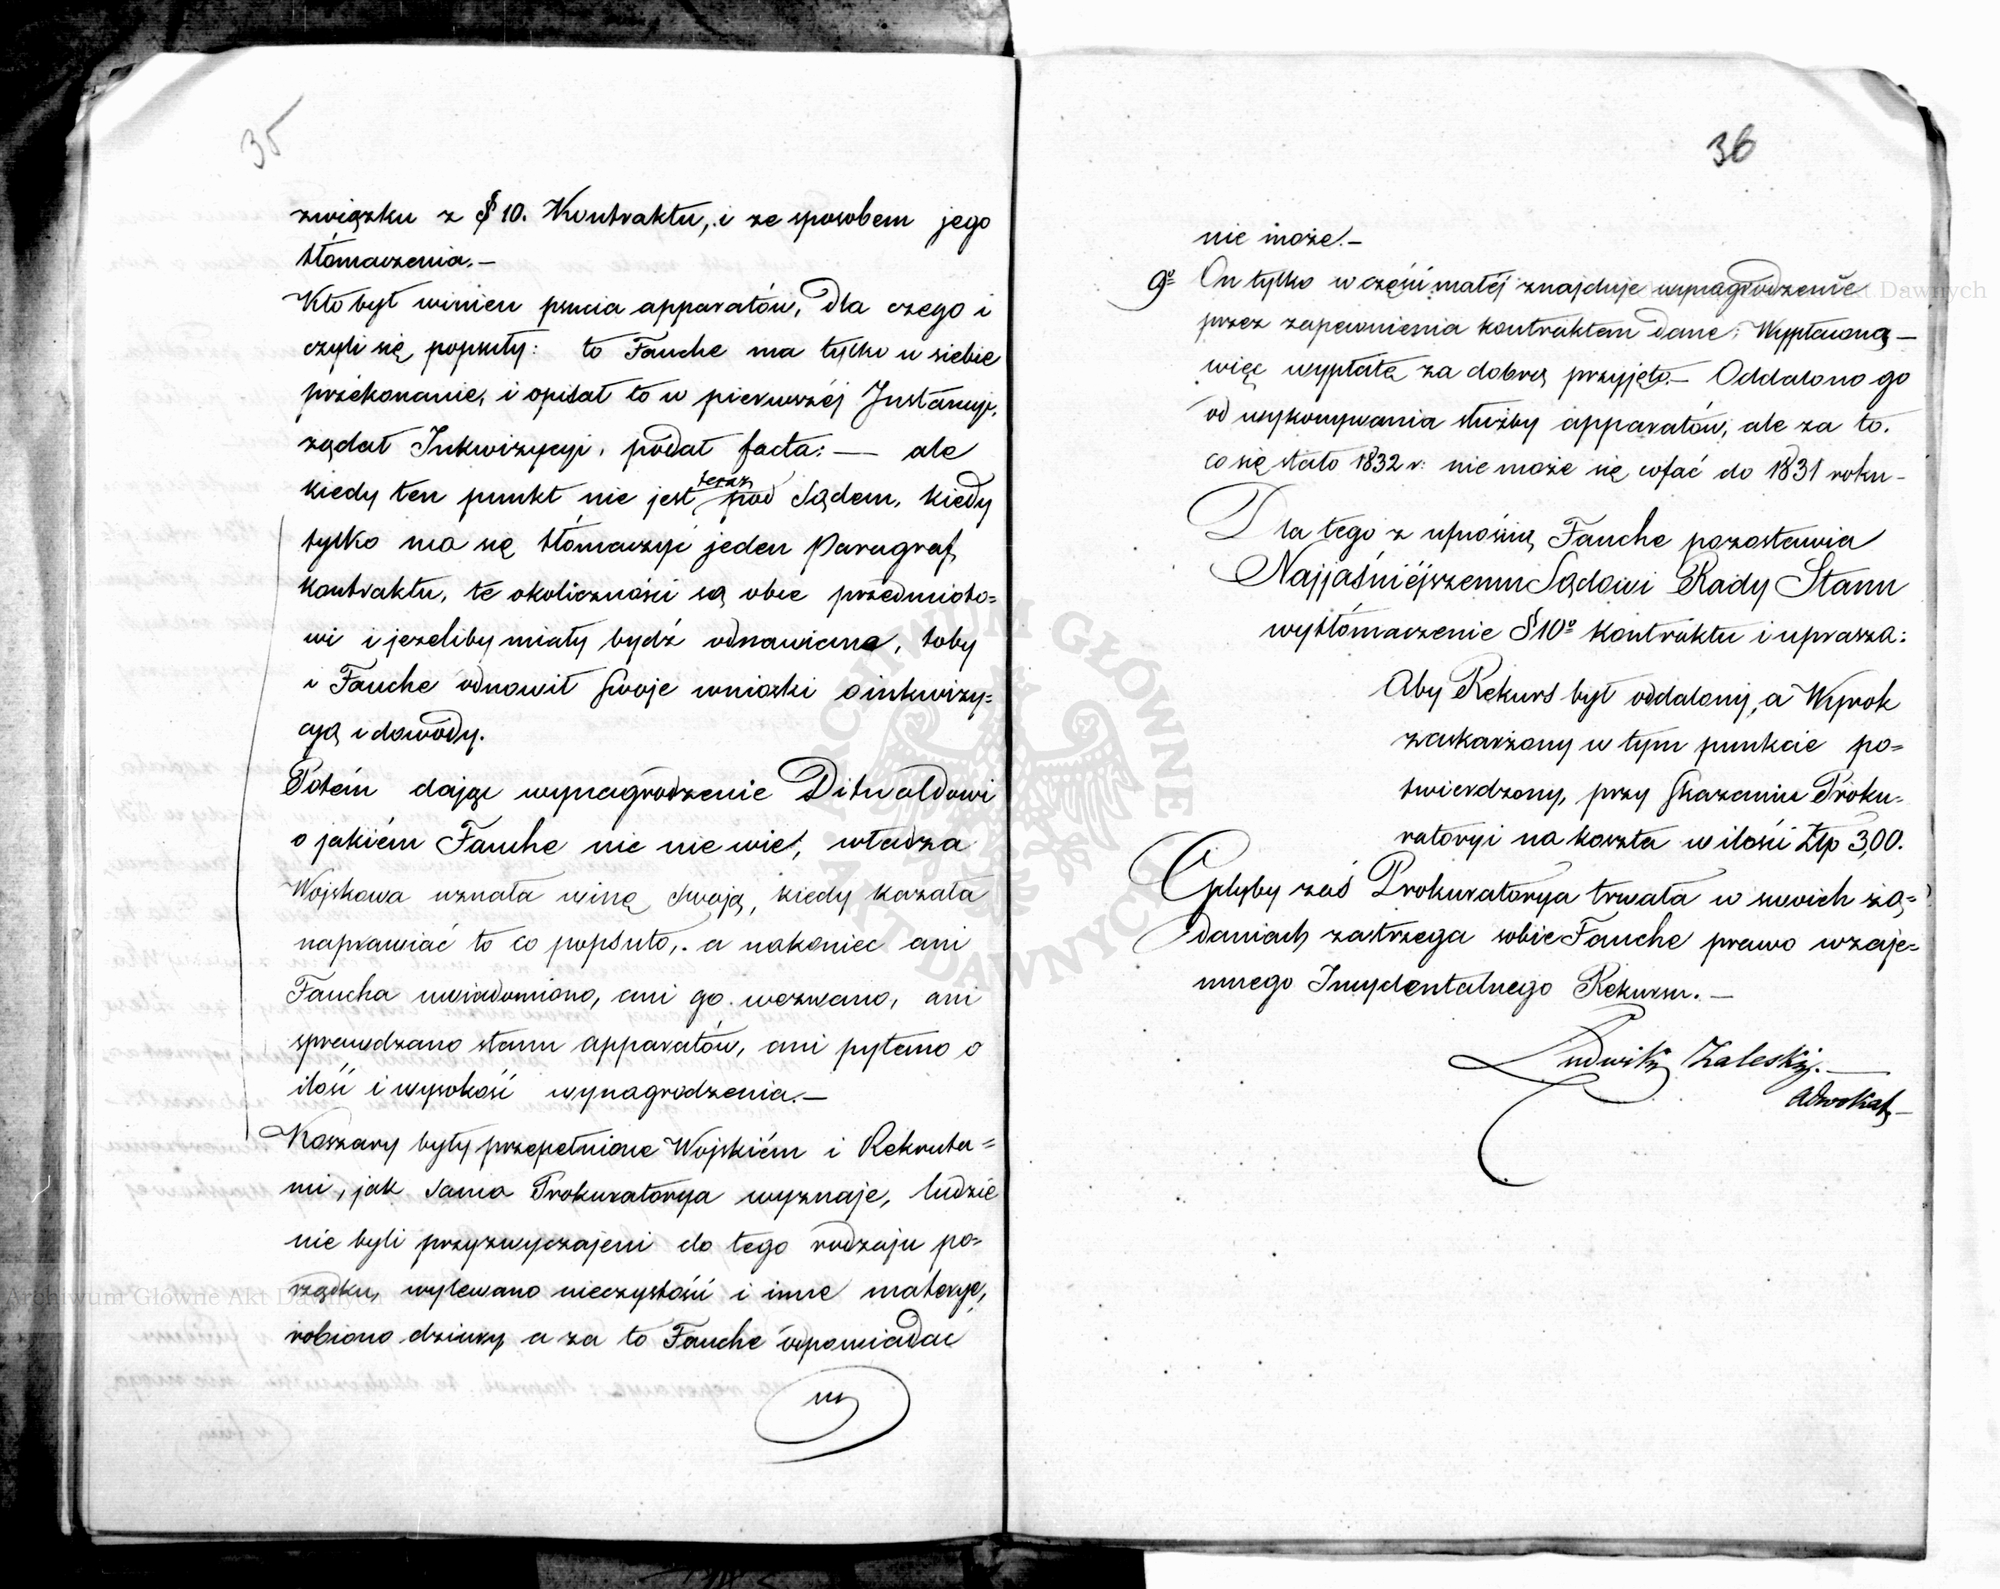 35
związku z § 10. Kontraktu, i ze sposobem jego
tłómaczenia.—
Kto był winien psucia apparatów, dla czego i
czyli się popsuły: to Fauche ma tylko u siebie
przekonanie, i opisał to w pierwszéj Instancyi,
żądał Inkwizycyi, podał facta: — ale
teraz
kiedy ten punkt nie jest pod Sądem, kiedy
tylko ma się tłómaczyć jeden Paragraf
kontraktu, te okoliczności są obce przedmioto=
wi i jeżeliby miały bydź odnawiane, toby
i Fauche odnowił swoje wnioski o inkwizy=
cyą i dowody.
Potém dając wynagrodzenie Ditwaldowi
o jakiém Fauche nic nie wie, władza
Wojskowa uznała winę swoją, kiedy kazała
naprawiać to co popsuto, a nakoniec ani
Faucha uwiadomiono, ani go wezwano, ani
sprawdzano stanu apparatów, ani pytano o
ilość i wysokość wynagrodzenia.—
Koszary były przepełnione Wojskiém i Rekruta=
mi, jak sama Prokuratorya wyznaje, ludzie
nie byli przyzwyczajeni do tego rodzaju po=
rządku, wylewano nieczystości i inne materye,
robiono dziury a za to Fauche odpowiadać
36
nie może.—
9º On tylko w części małéj znajduje wynagrodzenie
przez zapewnienia kontraktem dane: Wypłaconą —
więc wypłatę za dobrą przyjęto.— Oddalono go
od wykonywania służby apparatów, ale za to,
co się stało 1832 r: nie może się cofać do 1831 roku—
Dla tego z ufnością Fauche pozostawia
Najjaśniéjszemu Sądowi Rady Stanu
wytłómaczenie § 10º kontraktu i uprasza:
Aby Rekurs był oddalony, a Wyrok
zaskarżony w tym punkcie po=
twierdzony, przy skazaniu Proku=
ratoryi na koszta w ilości Złp 300.
Gdyby zaś Prokuratorya trwała w swoich żą=
daniach zastrzega sobie Fauche prawo wzaje=
mnego Incydentalnego Rekursu.—
Ludwik Zaleski.—
Adwokat—
Archiwum Główne Akt Dawnych